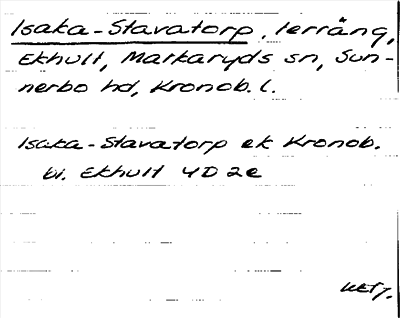 Isaka-Stavatorp, terräng,
Ekhult, Markaryds sn, Sun-
nerbo hd, Kronob. l.
Isaka-Stavatorp ek Kronob.
bl. Ekhult 4D2e